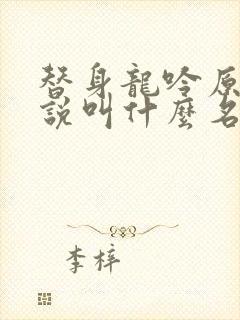 替身龍吟原
說叫什麼名
李梓